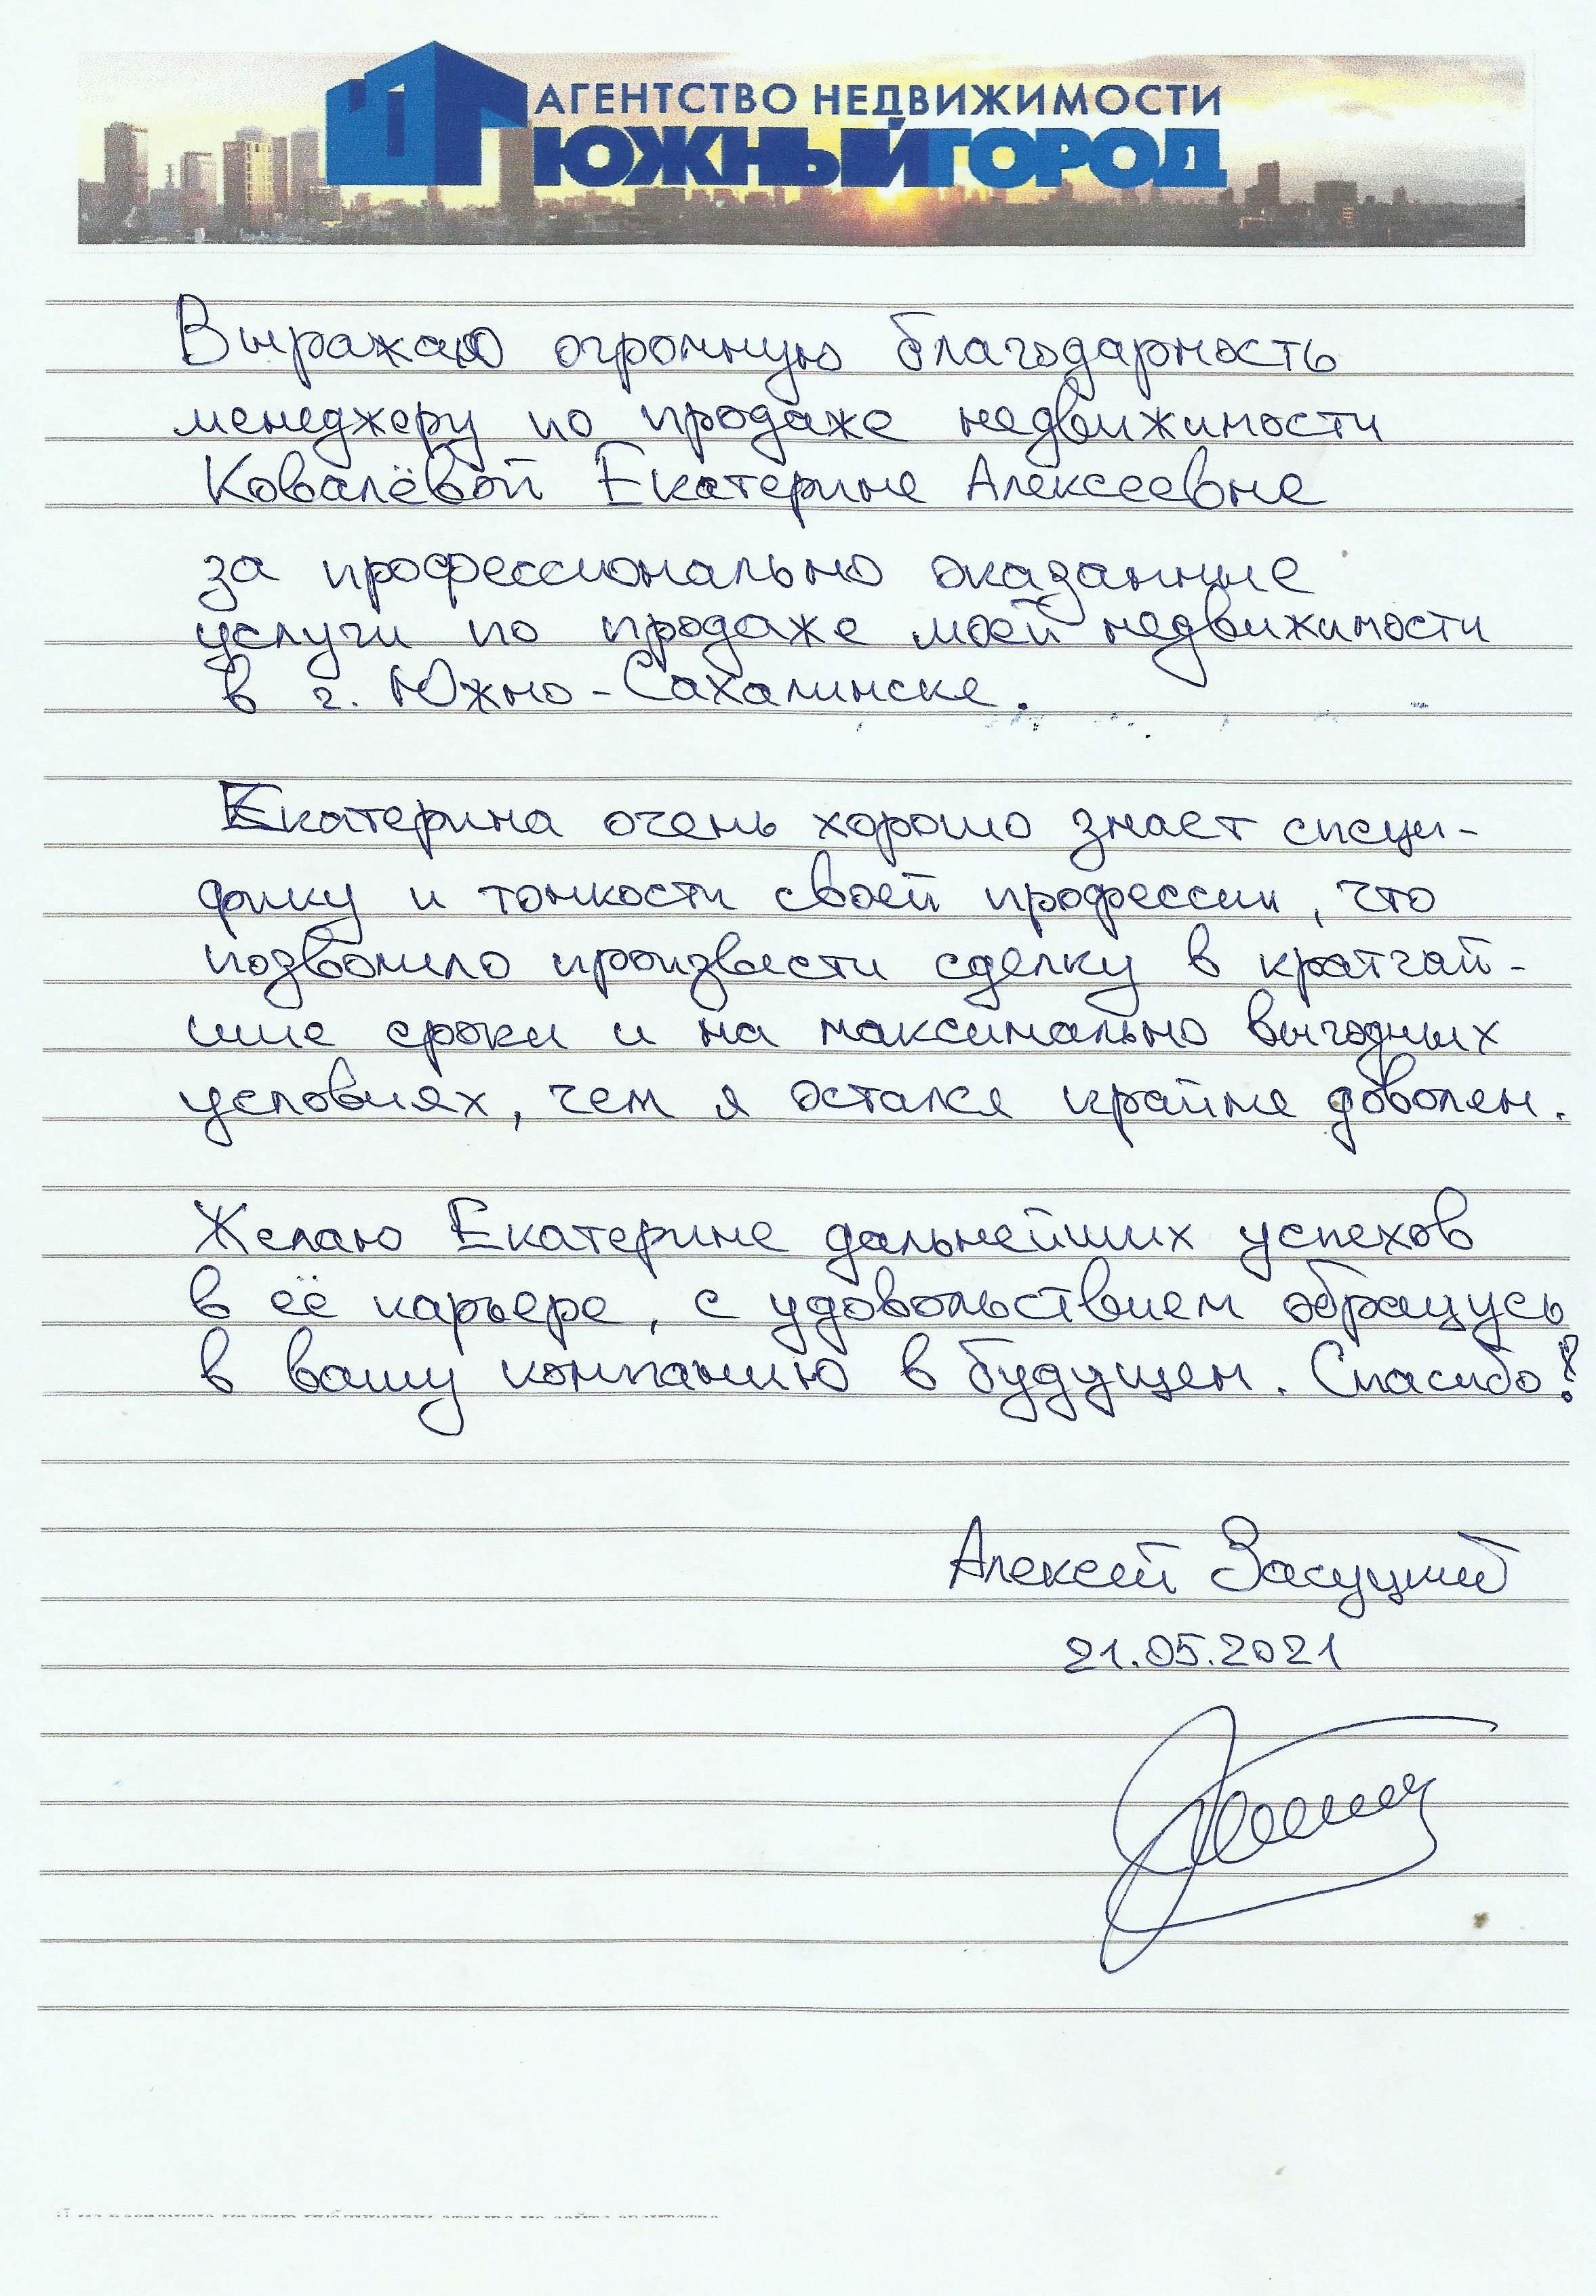 АГЕНТСТВО НЕДВИЖИМОСТИ
ЮЖНЫЙГОРОД
Выражаю огромную благодарность
менеджеру по продаже недвижимости
Ковалёвой Екатерине Алексеевне
за профессионально оказанные
услуги по продаже моей недвижимости
в г. Южно-Сахалинске.
Екатерина очень хорошо знает специ-
фику и тонкости своей профессии, что
позволило произвести сделку в кратчай-
шие сроки и на максимально выгодных
условиях, чем я остался крайне доволен.
Желаю Екатерине дальнейших успехов
в её карьере, с удовольствием обращусь
в вашу компанию в будущем. Спасибо!
Алексей Засуцкий
21.05.2021